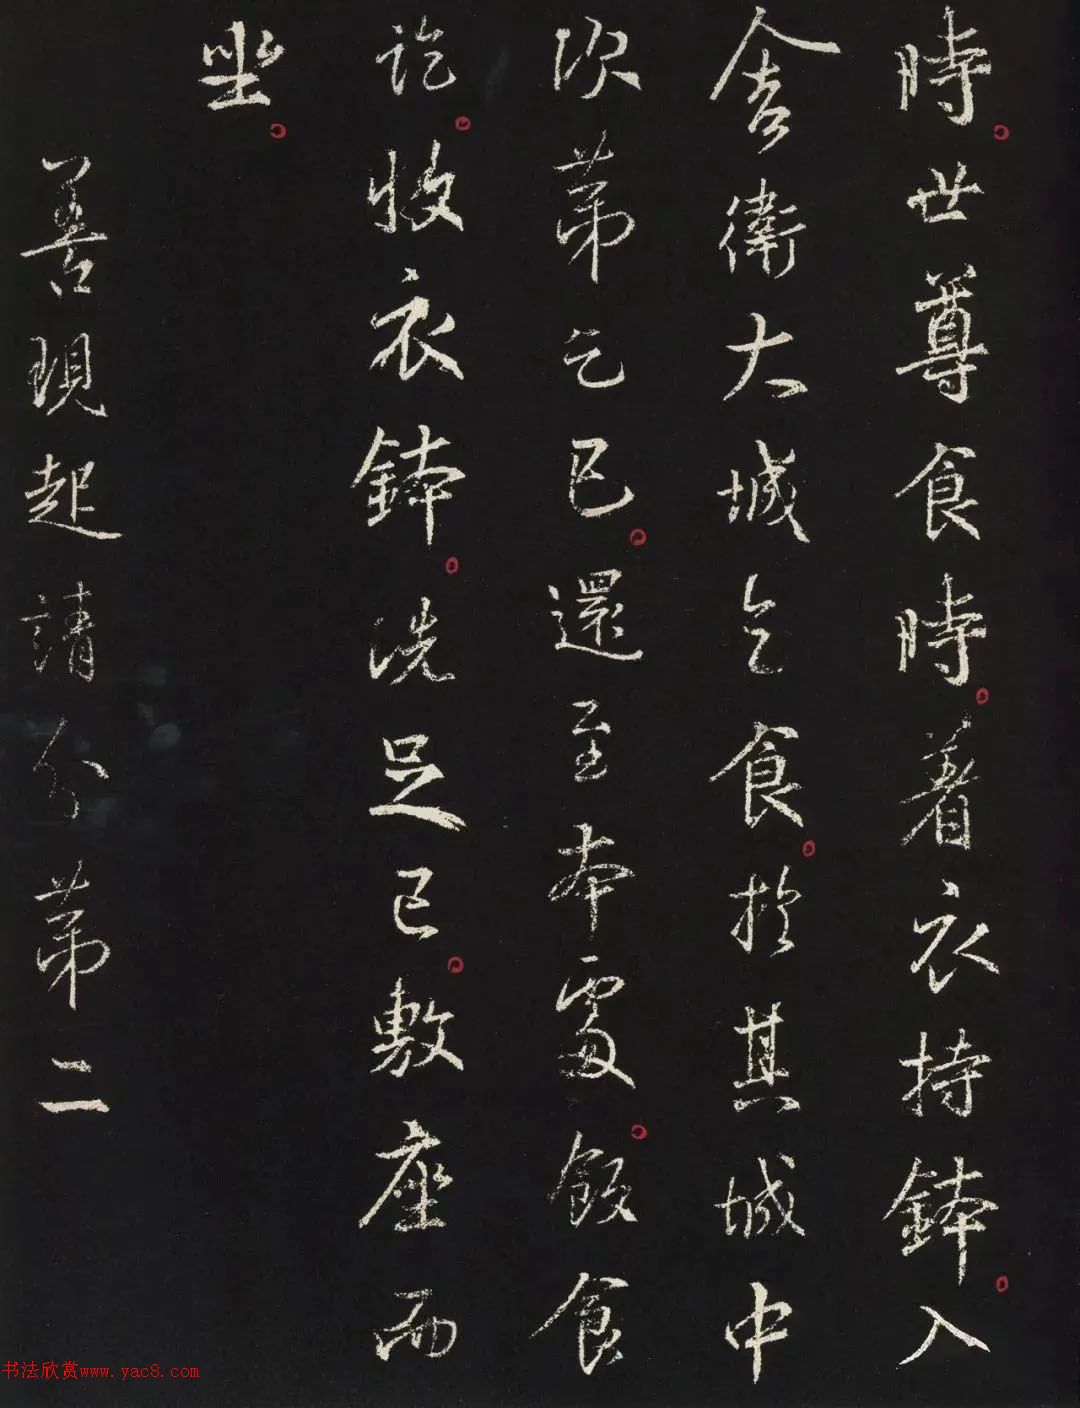 時。世尊食時。著衣持鉢。入
舍衛大城乞食。於其城中
次第乞已。還至本處。飯食
訖。收衣鉢。洗足已。敷座而
坐。
善現起請分第二
书法欣赏www.yac8.com